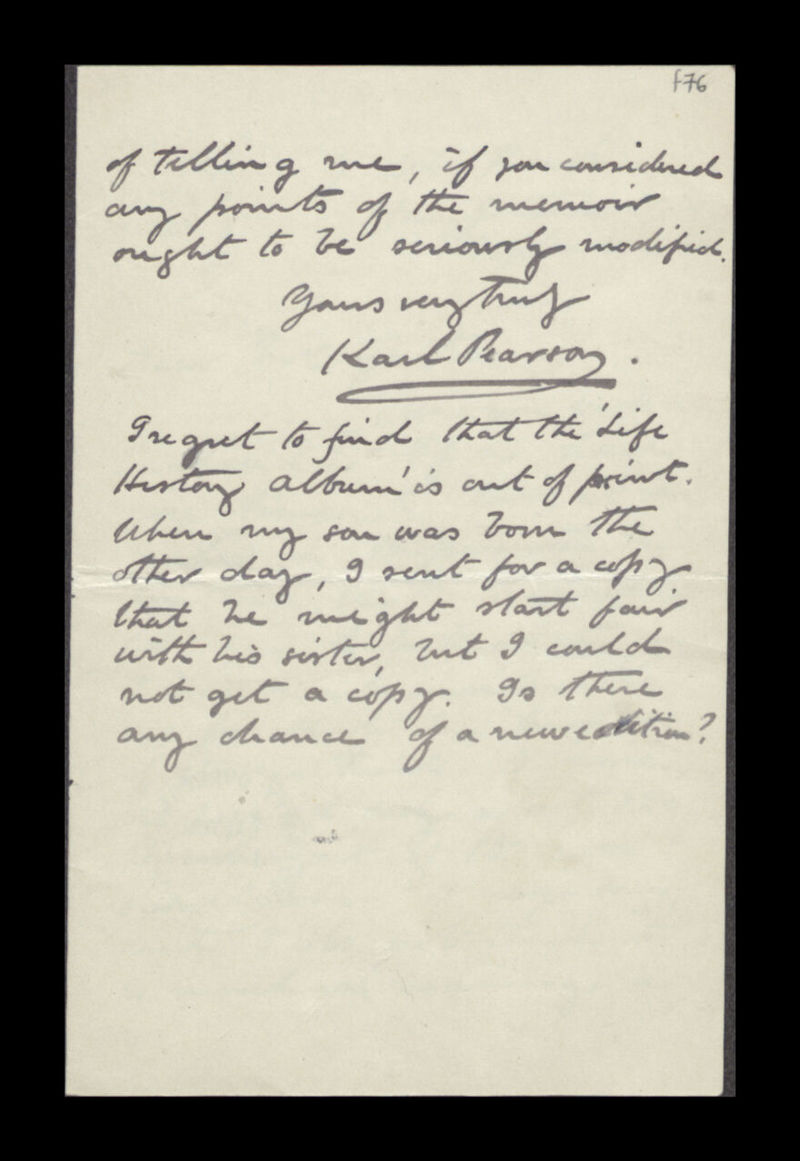 f76
of telling me, if you considered
any points of the memoir
ought to be seriously modified.
Yours very truly
Karl Pearson.
I regret to find that the 'Life
History Album' is out of print.
When my son was born the
other day, I sent for a copy
that he might start fair
with his sister, but I could
not get a copy. Is there
any chance of a new edition?